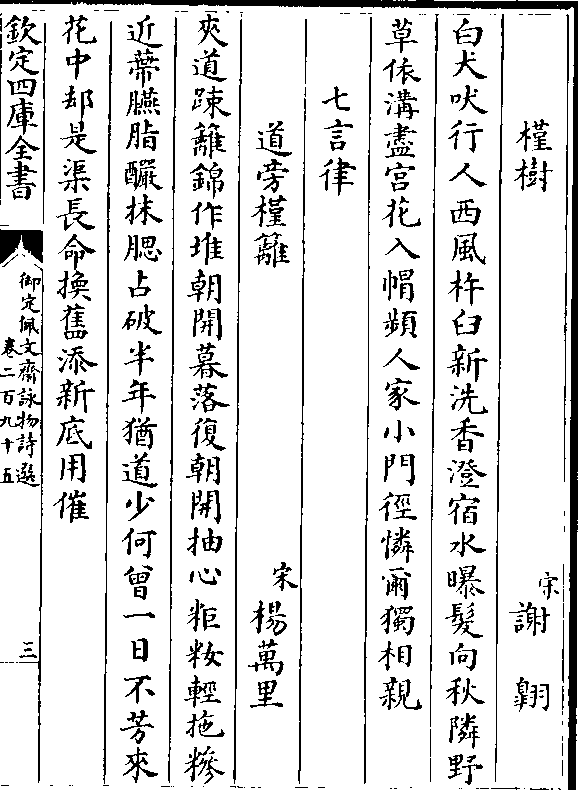 槿樹　宋謝翱
白犬吠行人西風杵臼新洗香澄宿水曝髮向秋隣野
草依溝盡宮花入帽頻人家小門徑憐爾獨相親
七言律
道旁槿籬　宋楊萬里
夾道疎籬錦作堆朝開暮落復朝開抽心粔籹輕拖糝
近蔕臙脂釅抹腮占破半年猶道少何曾一日不芳來
花中却是渠長命換舊添新底用催
欽定四庫全書
御定佩文齋詠物詩選
卷二百九十五
三